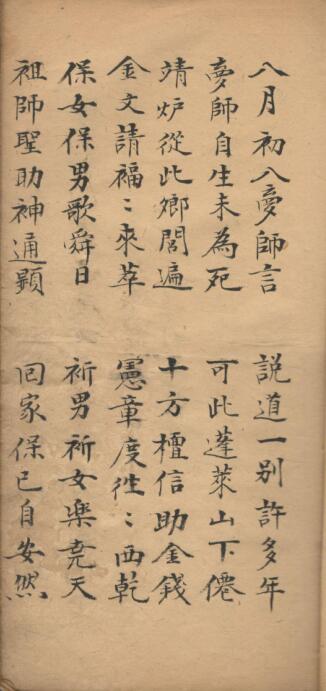 八月初八夢師言 説道一别許多年
夢師自生未為死 可此蓬萊山下僊
靖炉從此鄉閭遍 十方檀信助金錢
金文請福〻來萃 憲章度徃〻西乾
保女保男歌舜日 祈男祈女樂堯天
祖師聖助神通顕 回家保已自安然